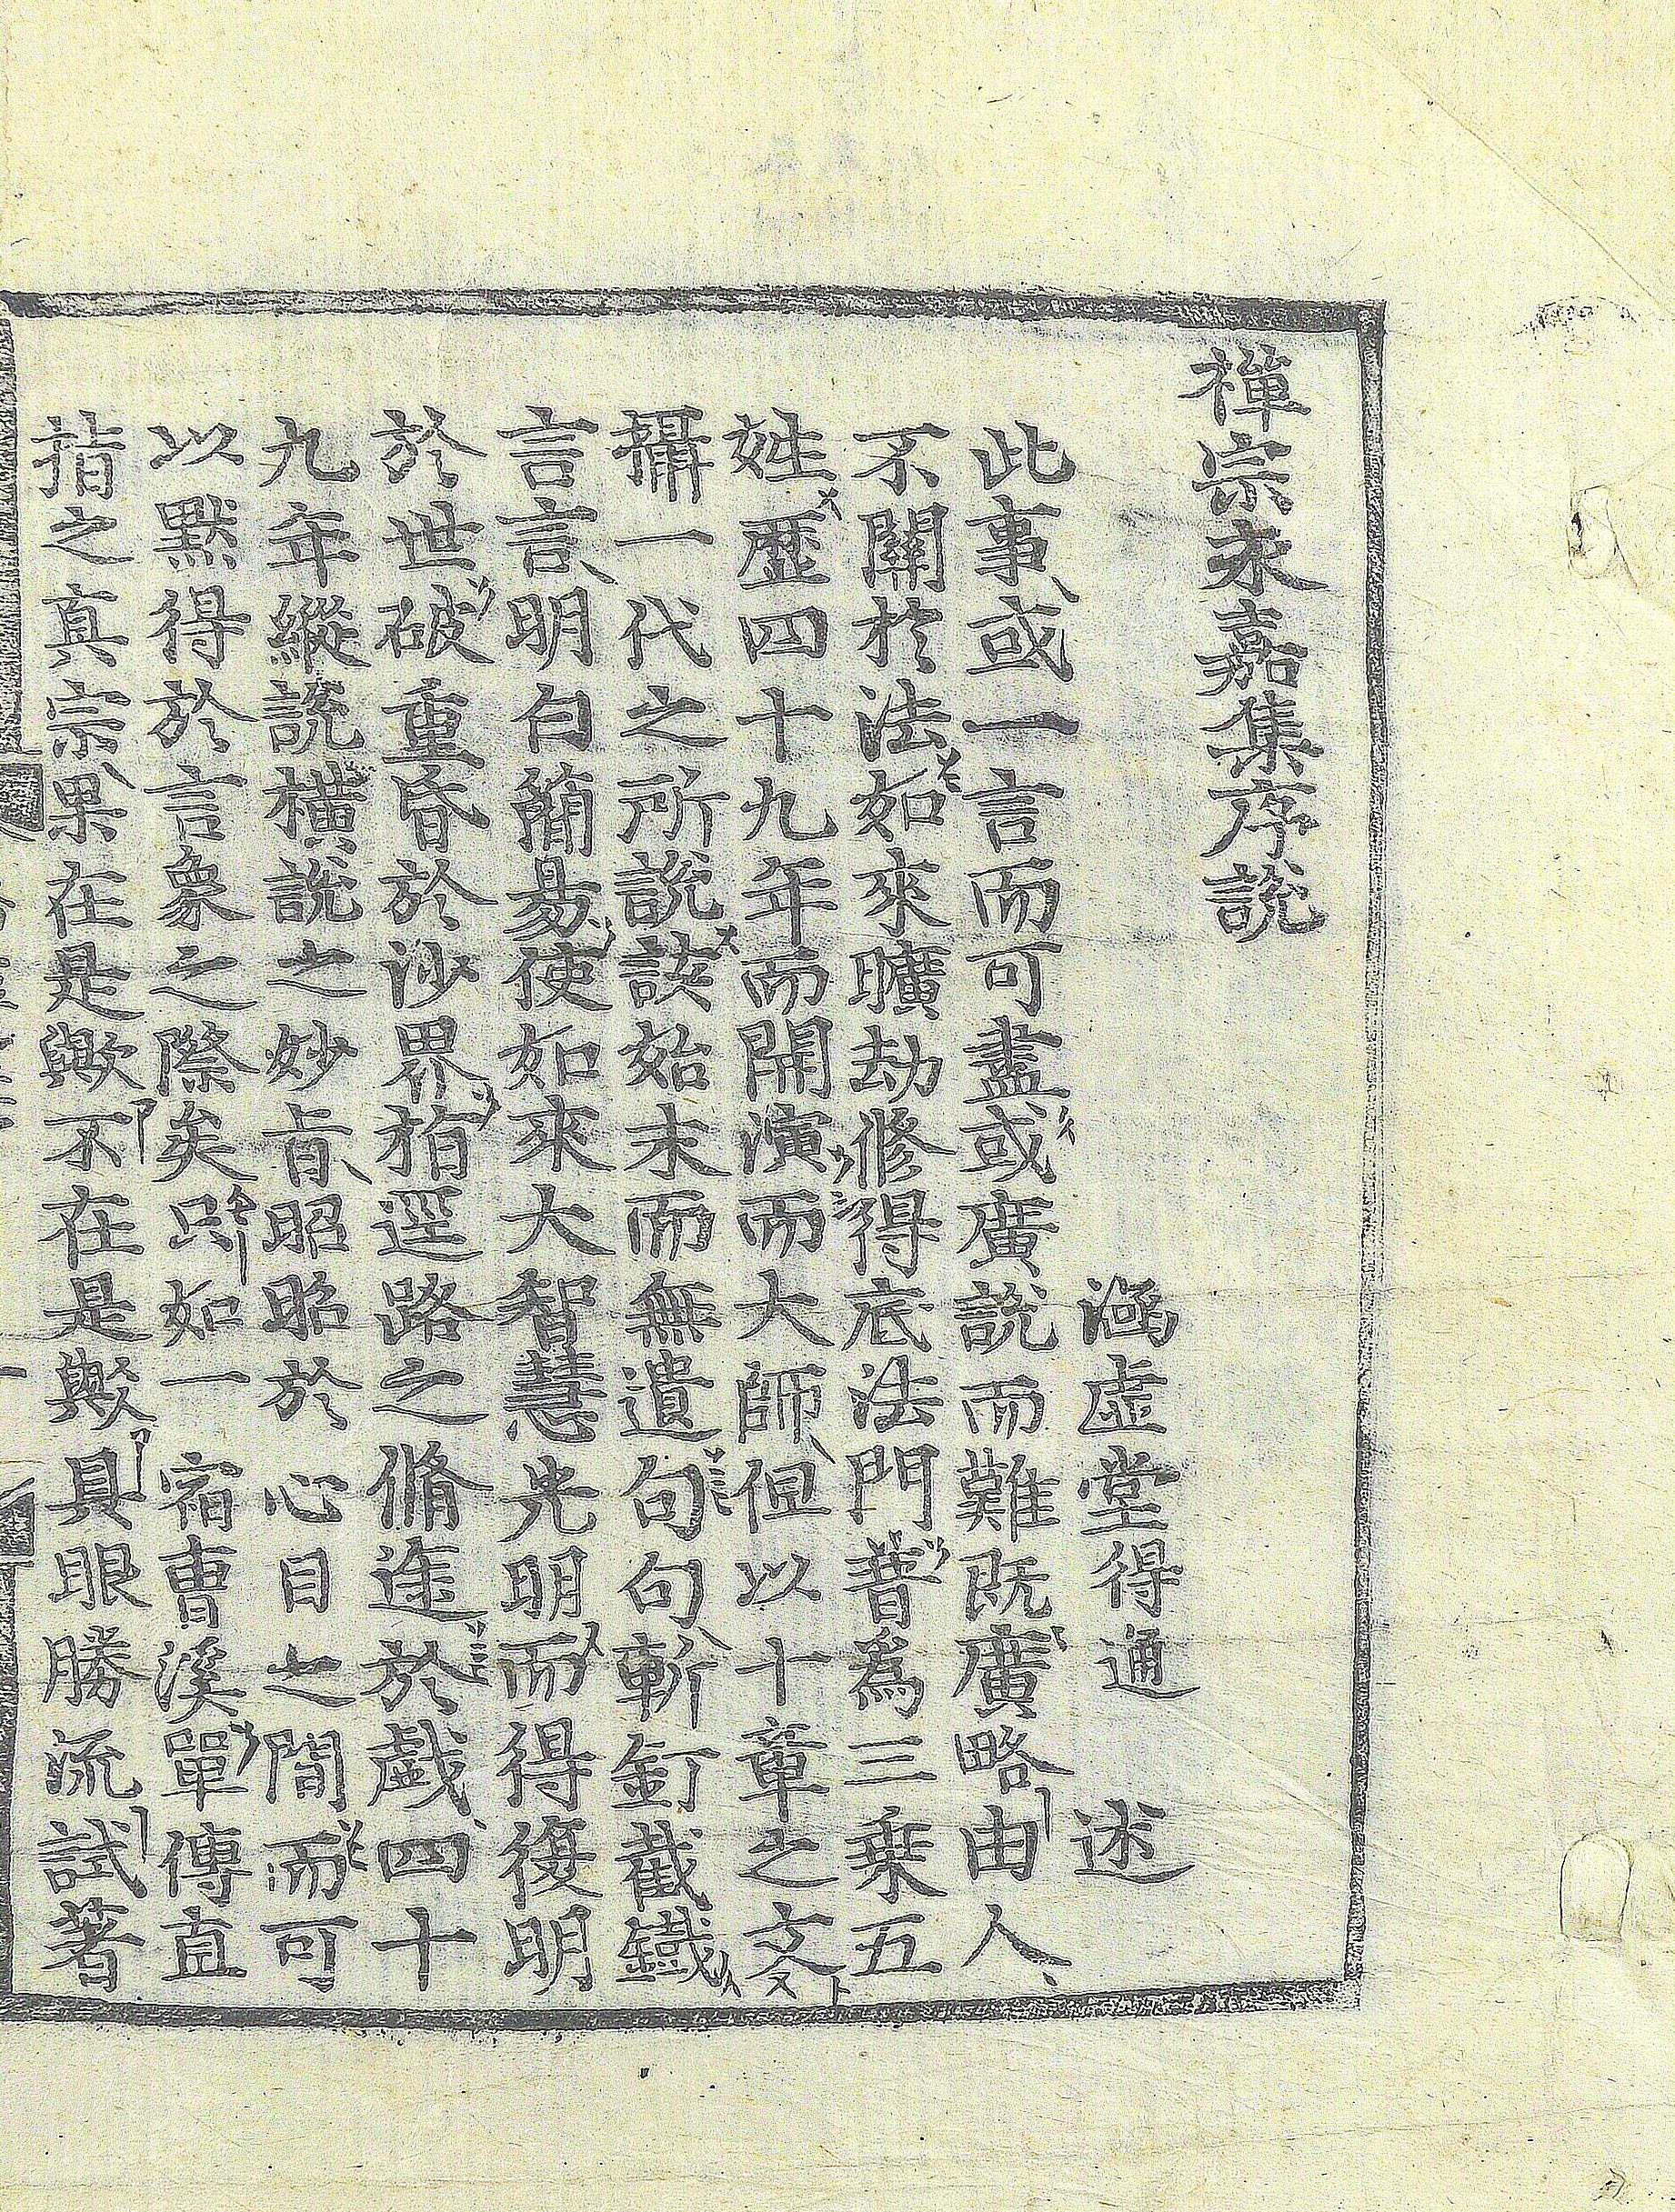 禪宗永嘉集序說
涵虛堂得通 述
此事或一言而可盡或廣說而難旣廣略由人
不關於法如來曠劫修得底法門普爲三乘五
姓歷四十九年而開演而大師但以十章之文
攝一代之所說該始末而無遺句句斬釘截鐵
言言明白簡易使如來大智慧光明而得復明
於世破重昏於沙界指逕路之脩途於戲四十
九年縱說橫說之妙旨昭昭於心目之間而可
以默得於言象之際矣只如一宿曹溪單傳直
指之真宗果在是歟不在是歟具眼勝流試著